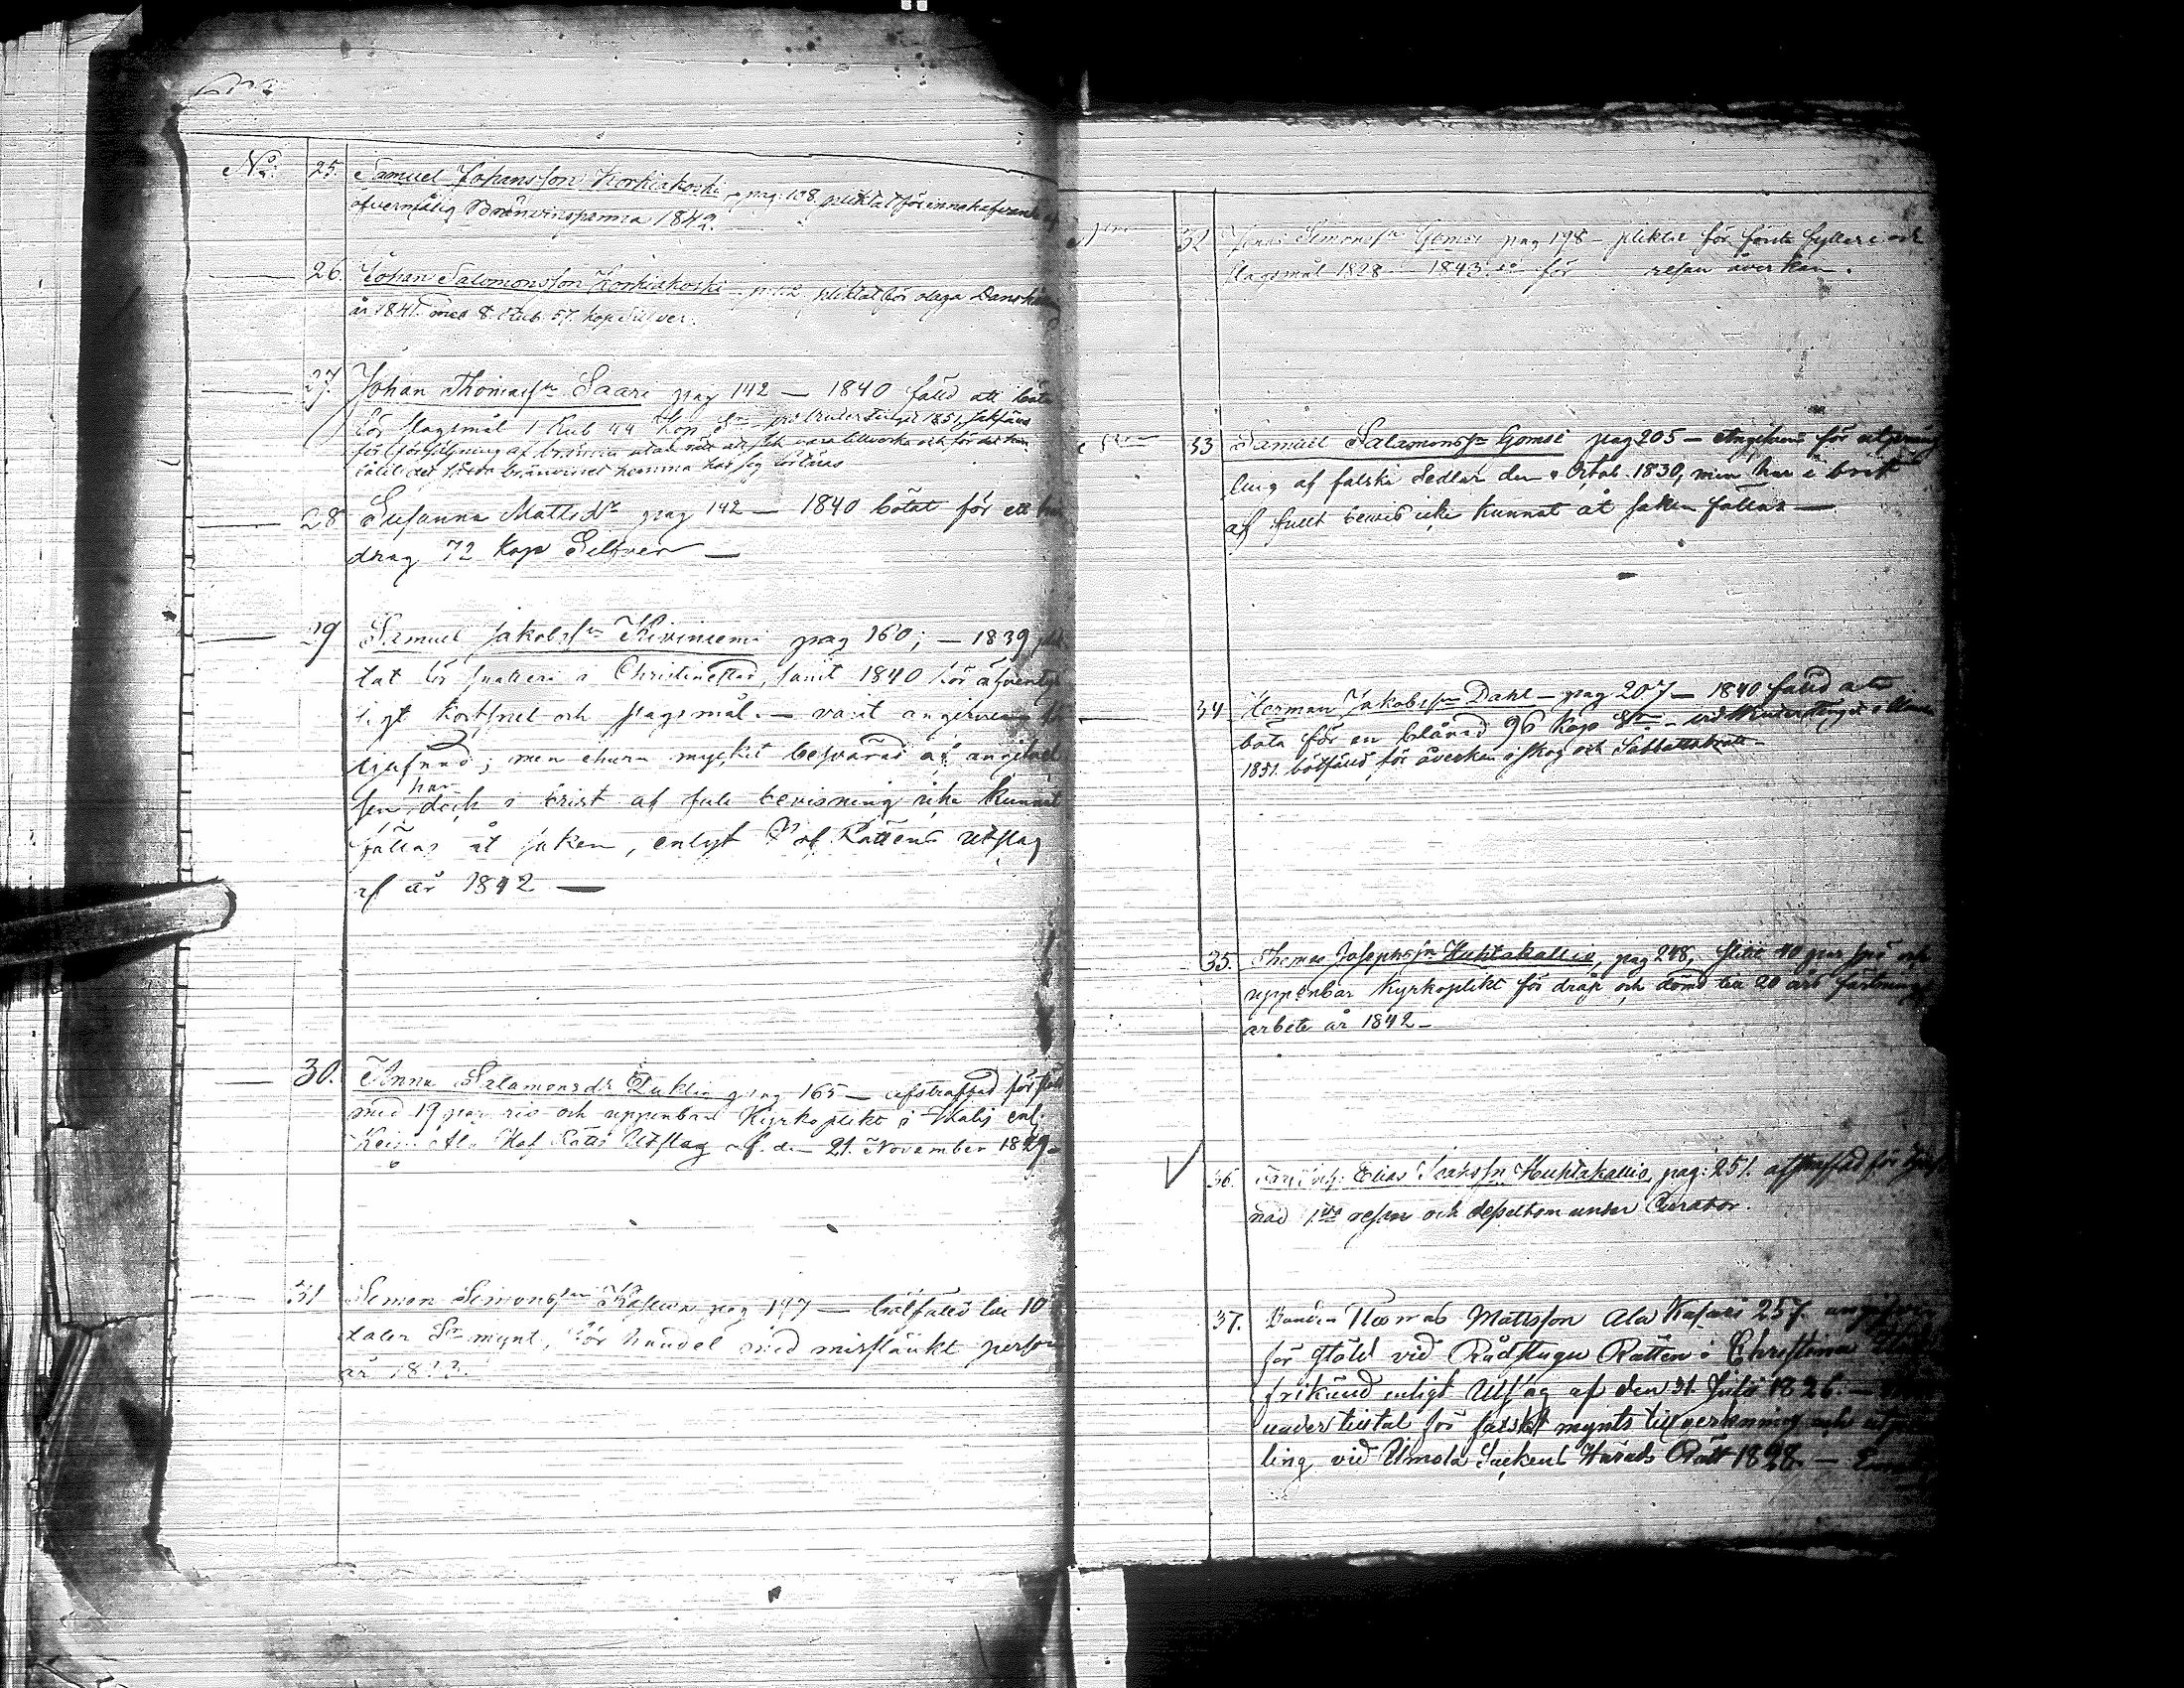 No: 25. Samuel Johansson Korkiakoski, pag. 108. pliktat för innehafvande af
öfvermålig Bränvinspanna 1842.
26. Johan Salomonsson Korkiakoski pliktat för olaga Danshåll
år 1841. med 8. Rub. 57. kop Silver.
27. Johan Thomass:n Saari pag 142 — 1840 fälld att böta
för slagsmål 1 Rub 44 Kop S:r vid Vinter Tinget 1851, sakfälld
för försäljning af bränvin utan rätt att vara tillverka och för det han
låtit det sålda bränvinet hemma hos sig förtäras
28 Susanna Mattsd:r pag 142 — 1840 bötat för ett hår
drag 72 Kop Silfver —
29 Samuel Jakobss:n Kiviniemi pag 160; — 1839 plik
tat för snatteri i Christinestad, samt 1840 för äfventyr
ligt kortspel och slagsmål. — varit angifven för
tjufnad; men ehuru mycket besvärad af angifvel
sen, har dock i brist af full bevisning icke kunnat
fällas åt saken, enligt Hof Rättens Utslag
af år 1842 —
30. Anna Salamonsdr pag 165 — afstraffad för stöld
med 19 par ris och uppenbar Kyrkoplikt i Ikalis enl.
Kejs: Åbo Hof Rätts Utslag af den 21. November 1829.
31 Simon Simonss:n pag 197 — bötfälld till 10
daler S:r mynt, för handel med misstänkt person
år
32 Jonas Simonss:n Gomsi pag 198 — pliktat för första fylleri och
slagsmål 1828 — 1843 för resan åverkan.
33 Samuel Salamonss:n Gomsi pag 205 — Angifven för utpräng
ling af falska Sedlar den Octob. 1830, men har i brist
af fullt bevis icke kunnat åt saken fällas —
34 Herman Jakobss:n Dahl — pag 207 — 1840 fälld att
böta för en blånad 96 Kop S:r — vid Vinter Tinget i Ilmola
1851. bötfälld för åverkan å skog och Sabbatsbrott —
35. Thomas Josephss:n Huhtakallio, pag 248, slitit 40 par spö och
uppenbar Kyrkoplikt för dråp och dömd till 20 års fästnings
arbete år 1842 —
36. Elias Isakss:n Huhtakallio, pag: 251. afstraffad för tjuf
nad 1:sta resan och dessutom under Curator.
37. Bonden Thomas Mattsson Ala Kasari 257. angifven
för stöld vid Rådstugu Rätten i Christina Stad
frikänd enligt Utslag af den 31. Julii 1826. —
under tilltal för falskt mynts tillverkning och utpräng
ling vid Ilmola Sockens Härads Rätt 1828. —